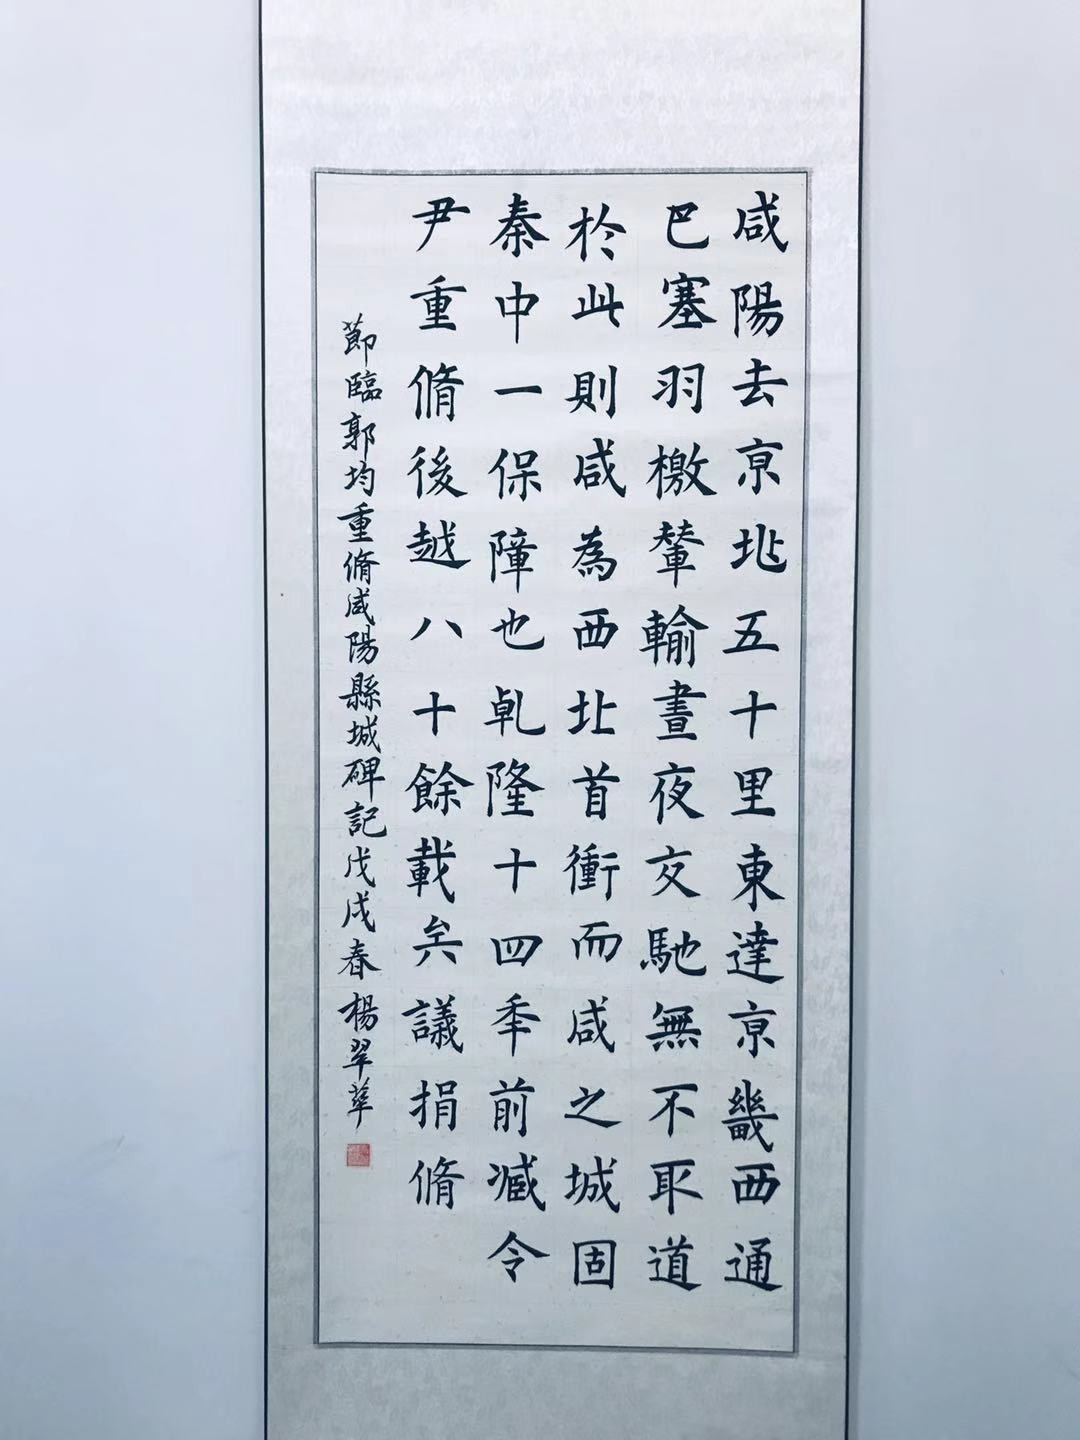 咸陽去京北五十里東達京畿西通
巴塞羽檄輦輸晝夜交馳無不取道
於此則咸為西北首衝而咸之城固
秦中一保障也乹隆十四年前咸令
尹重脩後越八十餘載矣議捐脩
節臨郭均重脩咸陽縣城碑記戊戌春楊翠華